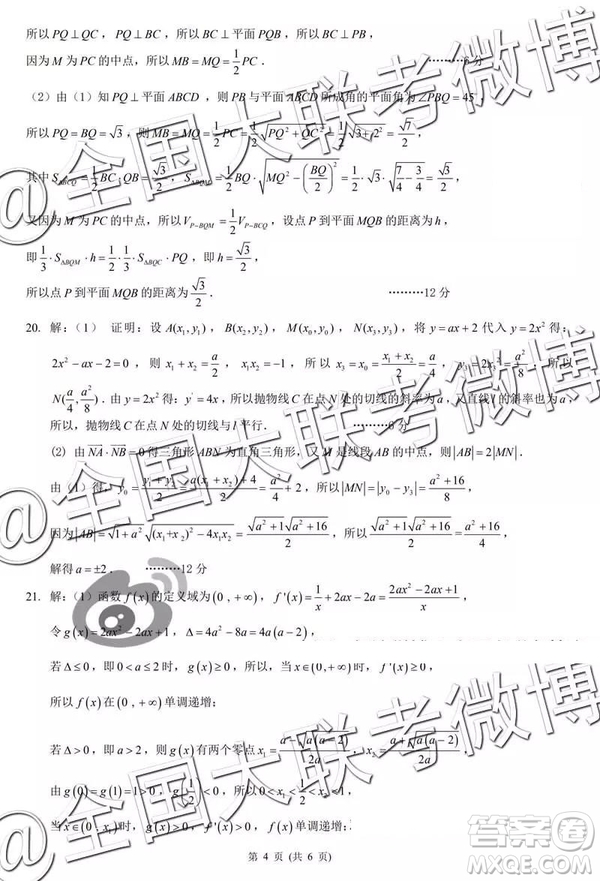 所以 PQ⊥QC , PQ⊥BC , 所以 BC⊥平面 PQB , 所以 BC⊥PB ,
因为 M 为 PC 的中点, 所以 MB = MQ = 1/2 PC .  ………6 分
(2) 由 (1) 知 PQ⊥平面 ABCD , 则 PB 与平面 ABCD 所成角的平面角为∠PBQ = 45°,
所以 PQ = BQ = √3 , 则 MB = MQ = 1/2 PC = 1/2 √(PQ² + QC²) = 1/2 √(3 + 2²) = √7/2 ,
其中 S△BCQ = 1/2 BC·QB = √3/2 , S△BQM = 1/2 BQ·√(MQ² − (BQ/2)²) = 1/2·√3·√(7/4 − 3/4) = √3/2 ,
又因为 M 为 PC 的中点, 所以 V_{P−BQM} = 1/2 V_{P−BCQ} , 设点 P 到平面 MQB 的距离为 h ,
即 1/3·S△BQM·h = 1/2·1/3·S△BQC·PQ , 即 h = √3/2 ,
所以点 P 到平面 MQB 的距离为 √3/2 .  ………12 分
20. 解: (1) 证明: 设 A(x₁, y₁) , B(x₂, y₂) , M(x₀, y₀) , N(x₃, y₃) , 将 y = ax + 2 代入 y = 2x² 得:
2x² − ax − 2 = 0 , 则 x₁ + x₂ = a/2 , x₁x₂ = −1 , 所以 x₃ = x₀ = (x₁ + x₂)/2 = a/4 , y₃ = 2x₃² = a²/8 . 所以
N(a/4, a²/8) . 由 y = 2x² 得: y′ = 4x , 所以抛物线 C 在点 N 处的切线的斜率为 a , 又直线 l 的斜率也为 a ,
所以, 抛物线 C 在点 N 处的切线与 l 平行.  ………6 分
(2) 由 NA·NB = 0 得三角形 ABN 为直角三角形, 又 M 是线段 AB 的中点, 则 |AB| = 2|MN| .
由 (1) 得, y₀ = (y₁ + y₂)/2 = (a(x₁ + x₂) + 4)/2 = a²/4 + 2 , 所以 |MN| = |y₀ − y₃| = (a² + 16)/8 ,
因为 |AB| = √(1 + a²)√((x₁ + x₂)² − 4x₁x₂) = √(a² + 1)√(a² + 16)/2 , 所以 √(a² + 1)√(a² + 16)/2 = (a² + 16)/4 ,
解得 a = ±2 .  ………12 分
21. 解: (1) 函数 f(x) 的定义域为 (0, +∞) , f′(x) = 1/x + 2ax − 2a = (2ax² − 2ax + 1)/x ,
令 g(x) = 2ax² − 2ax + 1 , Δ = 4a² − 8a = 4a(a − 2) ,
若 Δ ≤ 0 , 即 0 < a ≤ 2 时, g(x) ≥ 0 , 所以, 当 x∈(0, +∞) 时, f′(x) ≥ 0 ,
所以 f(x) 在 (0, +∞) 单调递增;
若 Δ > 0 , 即 a > 2 , 则 g(x) 有两个零点 x₁ = (a − √(a(a − 2)))/2a , x₂ = (a + √(a(a − 2)))/2a ,
由 g(0) = g(1) = 1 > 0 , g(1/2) < 0 得 0 < x₁ < 1/2 < x₂ < 1 ,
当 x∈(0, x₁) 时, g(x) > 0 , f′(x) > 0 , f(x) 单调递增;
第 4 页 (共 6 页)
@全国大联考微博
@全国大联考微博
@全国大联考微博
答案圈